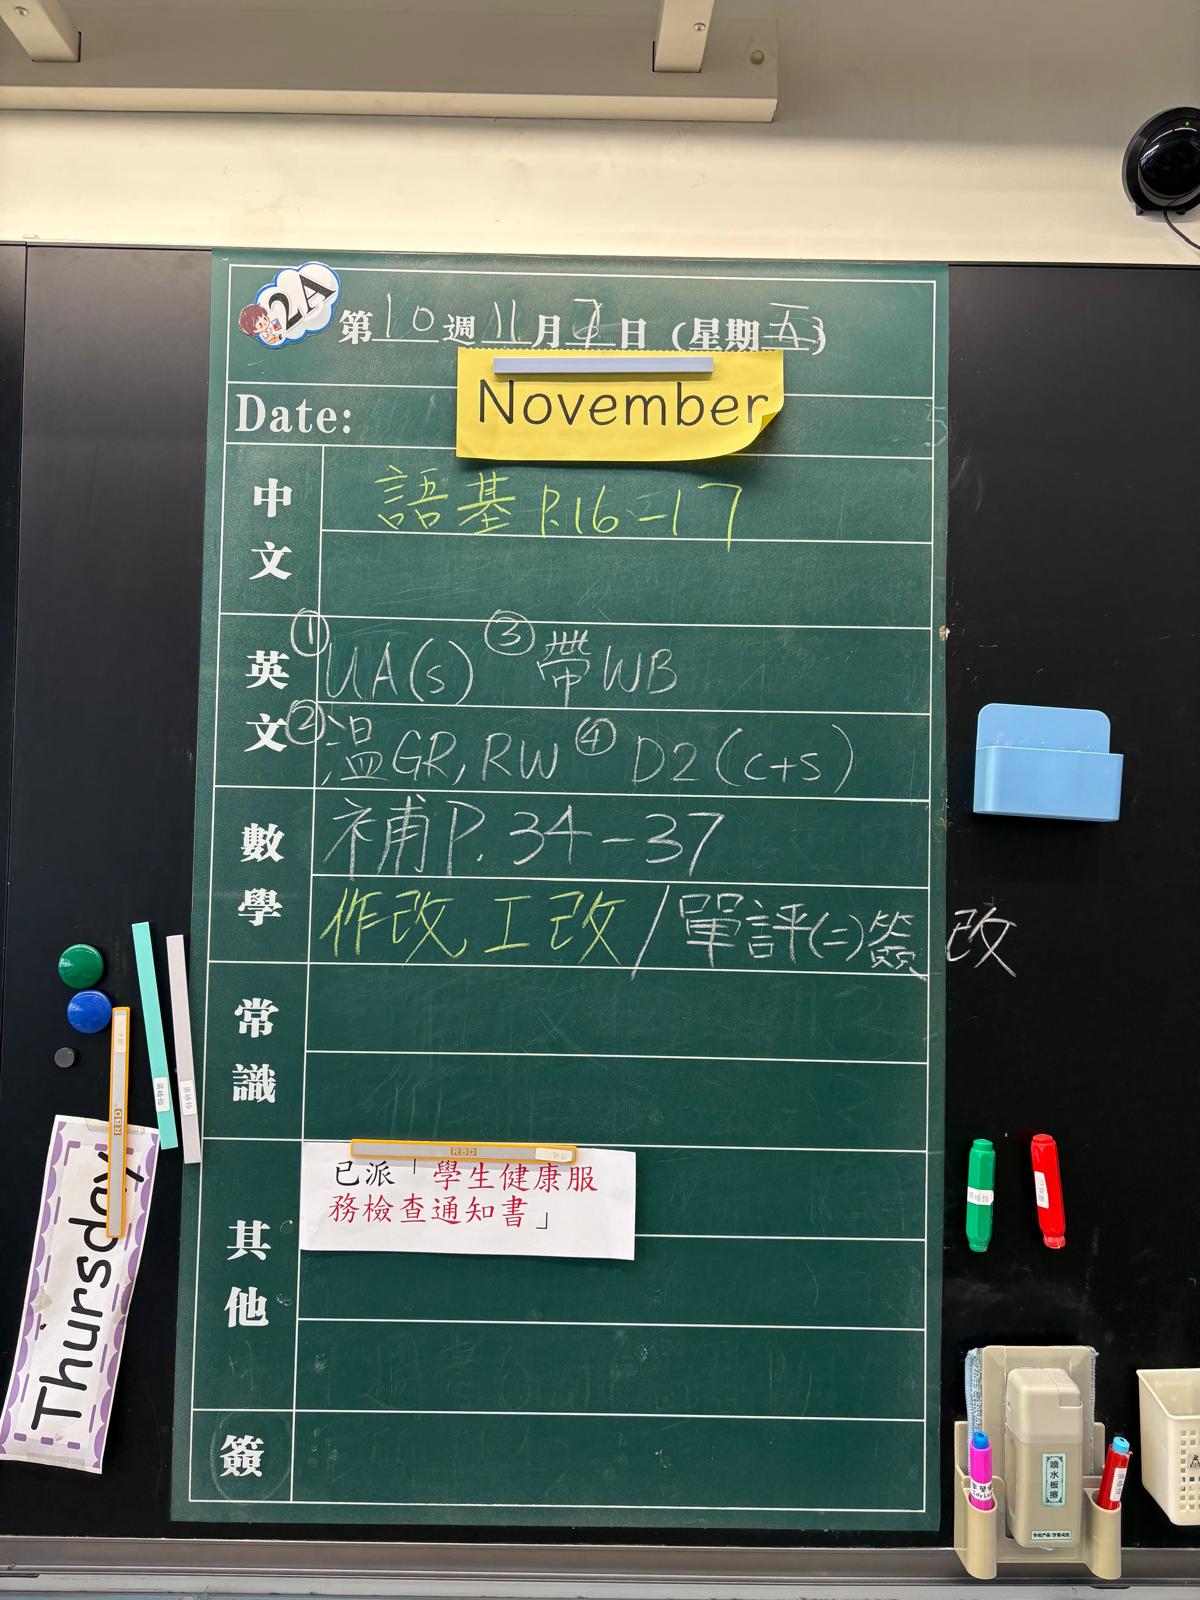 2A
第10週11月7日(星期五)
November
Date:
中文
語基 P.16-17
英文
① UA(s) ③ 帶WB
② 温GR, RW ④ D2(c+s)
數學
補P.34-37
作改, 工改/單評(二)簽改
常識
其他
RBD
已派「學生健康服
務檢查通知書」
簽
Thursday
RBD
噴水板擦